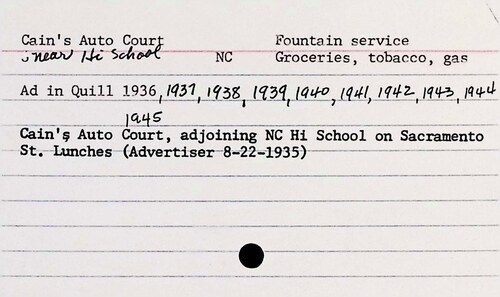 Cain's Auto Court Fountain service
near Hi School NC Groceries, tobacco, gas
Ad in Quill 1936, 1937, 1938, 1939, 1940, 1941, 1942, 1943, 1944
1945
Cain's Auto Court, adjoining NC Hi School on Sacramento
St. Lunches (Advertiser 8-22-1935)